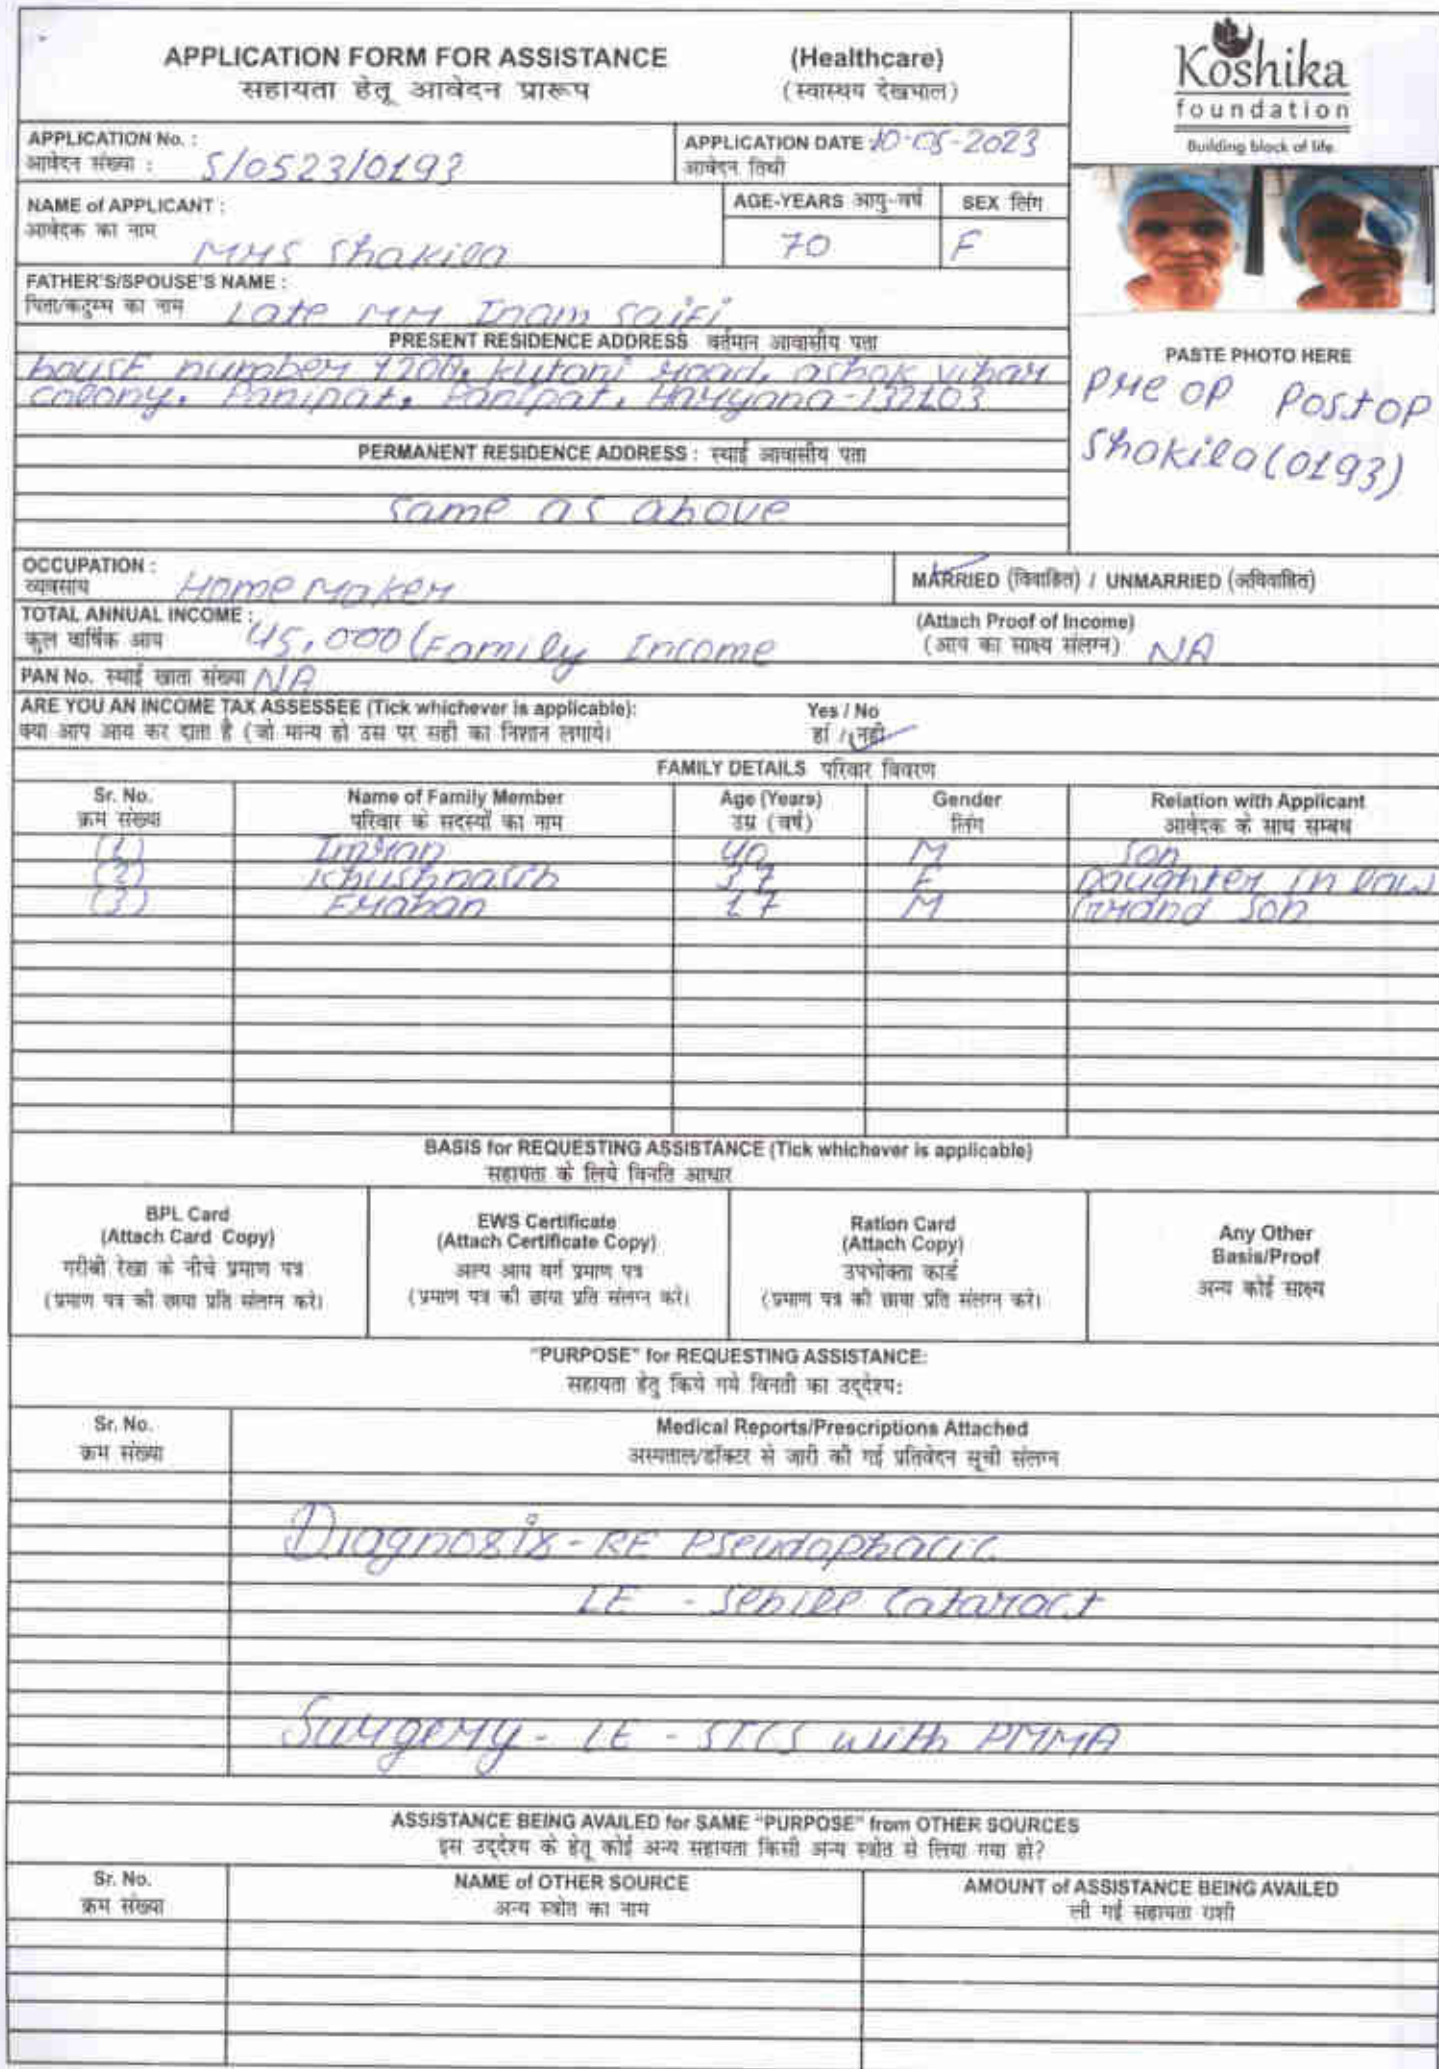 APPLICATION FORM FOR ASSISTANCE (Healthcare)
सहायता हेतू आवेदन प्रारूप (स्वास्थय देखभाल)
Koshika
foundation
Building block of life
APPLICATION No. : S/0523/0193
आवेदन संख्या :
APPLICATION DATE : 10-05-2023
आवेदन तिथी
NAME of APPLICANT : Mrs Shakila
आवेदक का नाम
AGE-YEARS आयु-वर्ष
70
SEX लिंग
F
FATHER'S/SPOUSE'S NAME :
पिता/कटुम्ब का नाम Late Mr Inam Saifi
PRESENT RESIDENCE ADDRESS वर्तमान आवासीय पता
house number 1200, kutani road, ashok vihar
colony, Panipat, Panipat, Haryana-132103
PERMANENT RESIDENCE ADDRESS : स्थाई आवासीय पता
same as above
PASTE PHOTO HERE
Pre op Post op
Shakila (0193)
OCCUPATION :
व्यवसाय Home Maker
MARRIED (विवाहित) / UNMARRIED (अविवाहित)
TOTAL ANNUAL INCOME :
कुल वार्षिक आय 45,000 (Family Income
(Attach Proof of Income)
(आय का साक्ष्य संलग्न) NA
PAN No. स्थाई खाता संख्या NA
ARE YOU AN INCOME TAX ASSESSEE (Tick whichever is applicable): Yes / No
क्या आप आय कर दाता है (जो मान्य हो उस पर सही का निशान लगाये। हां / नही
FAMILY DETAILS परिवार विवरण
Sr. No. Name of Family Member Age (Years) Gender Relation with Applicant
क्रम संख्या परिवार के सदस्यों का नाम उम्र (वर्ष) लिंग आवेदक के साथ सम्बध
(1) Imran 40 M Son
(2) Khushnasib 37 F Daughter in law
(3) Frahan 17 M Grand Son
BASIS for REQUESTING ASSISTANCE (Tick whichever is applicable)
सहायता के लिये विनति आधार
BPL Card
(Attach Card Copy)
गरीबी रेखा के नीचे प्रमाण पत्र
(प्रमाण पत्र की छाया प्रति संलग्न करे।
EWS Certificate
(Attach Certificate Copy)
अल्प आय वर्ग प्रमाण पत्र
(प्रमाण पत्र की छाया प्रति संलग्न करे।
Ration Card
(Attach Copy)
उपभोक्ता कार्ड
(प्रमाण पत्र की छाया प्रति संलग्न करे।
Any Other
Basis/Proof
अन्य कोई साक्ष्य
"PURPOSE" for REQUESTING ASSISTANCE:
सहायता हेतु किये गये विनती का उद्देश्य:
Sr. No. Medical Reports/Prescriptions Attached
क्रम संख्या अस्पताल/डॉक्टर से जारी की गई प्रतिवेदन सूची संलग्न
Diagnosis - RE Pseudophacic
LE - Senile Cataract
Surgery - LE - SICS with PMMA
ASSISTANCE BEING AVAILED for SAME "PURPOSE" from OTHER SOURCES
इस उद्देश्य के हेतू कोई अन्य सहायता किसी अन्य स्त्रोत से लिया गया हो?
Sr. No. NAME of OTHER SOURCE AMOUNT of ASSISTANCE BEING AVAILED
क्रम संख्या अन्य स्त्रोत का नाम ली गई सहायता राशी